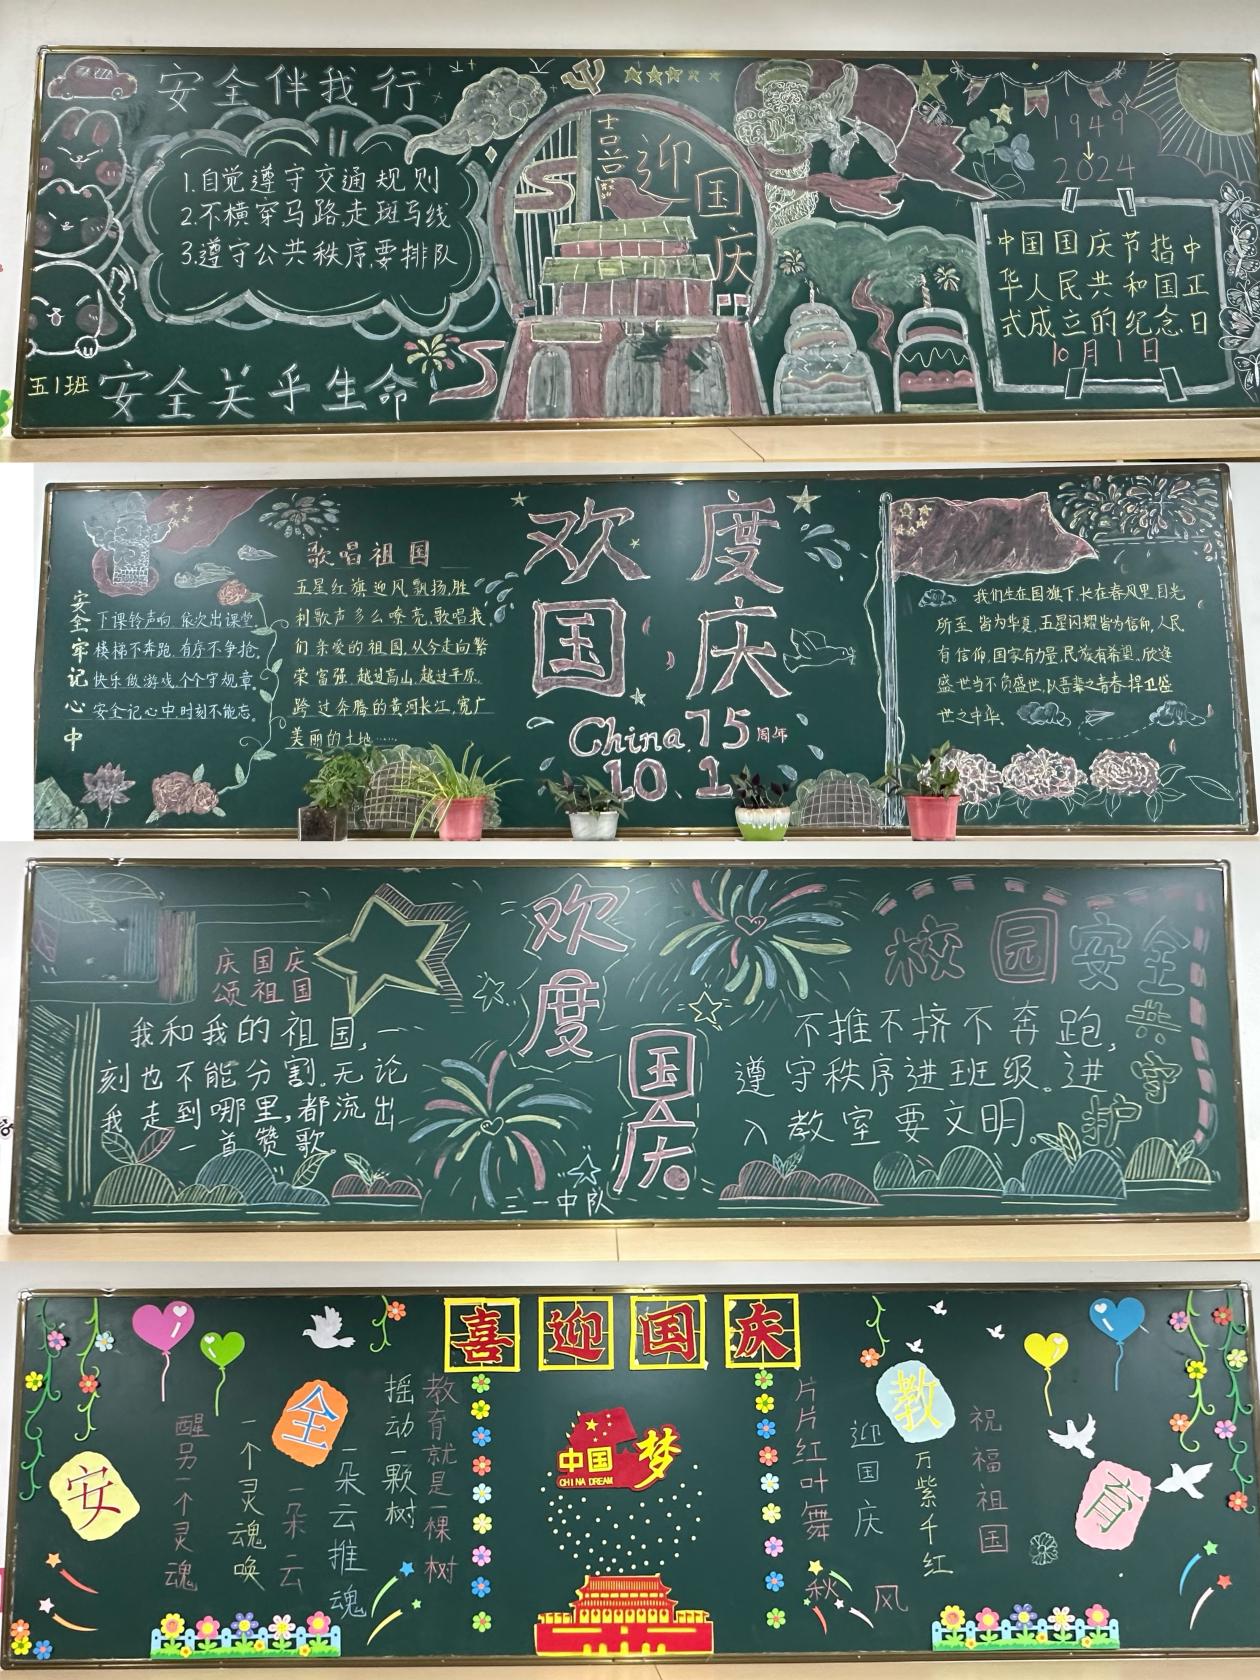 安全伴我行
1.自觉遵守交通规则
2.不横穿马路,走斑马线
3.遵守公共秩序,要排队
五1班
安全关乎生命
喜迎国庆
1949
2024
中国国庆节指中
华人民共和国正
式成立的纪念日
10月1日
安全牢记心中
下课铃声响,依次出课堂。
楼梯不奔跑,有序不争抢。
快乐做游戏,个个守规章。
安全记心中,时刻不能忘。
歌唱祖国
五星红旗迎风飘扬,胜
利歌声多么嘹亮,歌唱我
们亲爱的祖国,从今走向繁
荣富强。越过高山,越过平原。
跨过奔腾的黄河长江,宽广
美丽的土地……
欢度
国庆
China 75周年
10.1
我们生在国旗下,长在春风里,目光
所至,皆为华夏,五星闪耀皆为信仰,人民
有信仰,国家有力量,民族有希望,欣逢
盛世当不负盛世,以吾辈之青春,捍卫盛
世之中华。
庆国庆
颂祖国
我和我的祖国,一
刻也不能分割。无论
我走到哪里,都流出
一首赞歌。
欢度
国庆
三一中队
校园安全共守护
不推不挤不奔跑,
遵守秩序进班级。进
入教室要文明。
喜迎国庆
安全教育
教育就是一棵树
摇动一颗树
一朵云推魂
一朵云
一个灵魂唤
醒另一个灵魂
中国梦
CHINA DREAM
片片红叶舞秋风
迎国庆
万紫千红
祝福祖国